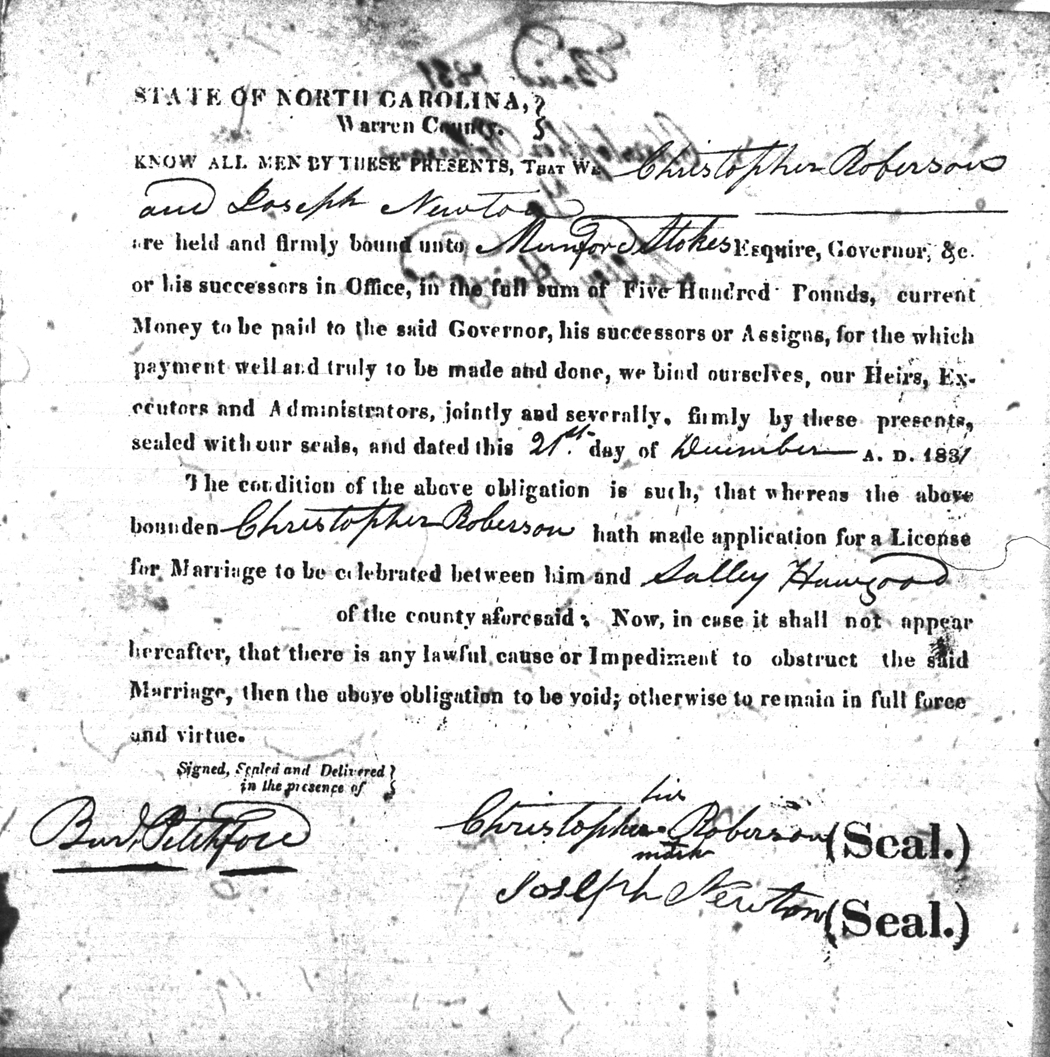 STATE OF NORTH CAROLINA,
Warren County.
KNOW ALL MEN BY THESE PRESENTS, THAT WE Christopher Roberson
and Joseph Newton
are held and firmly bound unto Munford Stokes Esquire, Governor, &c.
or his successors in Office, in the full sum of Five Hundred Pounds, current
Money to be paid to the said Governor, his successors or Assigns, for the which
payment well and truly to be made and done, we bind ourselves, our Heirs, Ex-
ecutors and Administrators, jointly and severally, firmly by these presents,
sealed with our seals, and dated this 21st. day of December A. D. 1831
The condition of the above obligation is such, that whereas the above
bounden Christopher Roberson hath made application for a License
for Marriage to be celebrated between him and Salley
of the county aforesaid; Now, in case it shall not appear
hereafter, that there is any lawful cause or Impediment to obstruct the said
Marriage, then the above obligation to be void; otherwise to remain in full force
and virtue.
Signed, Sealed and Delivered
in the presence of
his
Christopher Roberson (Seal.)
mark
Joseph Newton (Seal.)